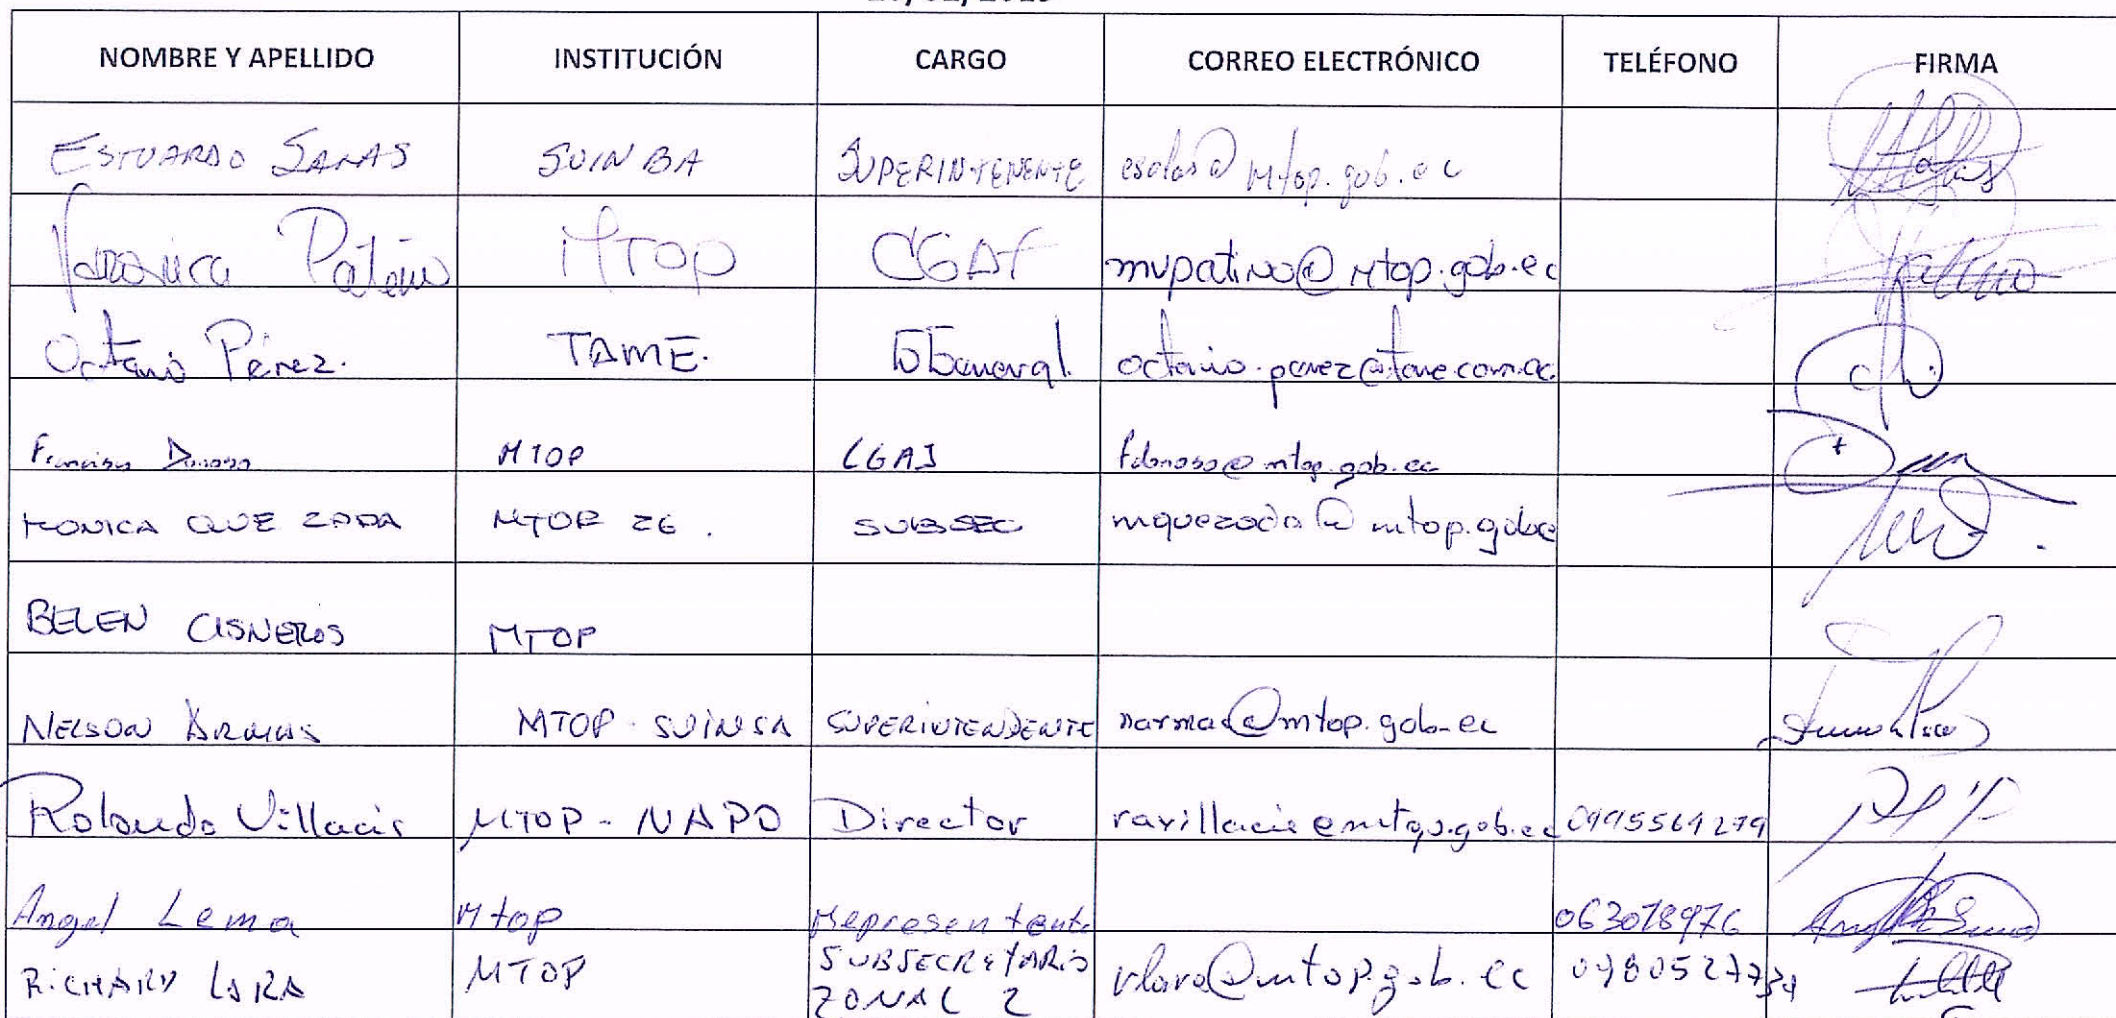 NOMBRE Y APELLIDO INSTITUCIÓN CARGO CORREO ELECTRÓNICO TELÉFONO FIRMA
ESTUARDO SALAS SUINBA SUPERINTENENTE esalas@mtop.gob.ec
Veronica Patiño MTOP CGAF mvpatino@mtop.gob.ec
Octavio Pérez. TAME. octavio.perez@tame.com.ec
Francisco Donoso MTOP CGAJ fdonoso@mtop.gob.ec
MONICA QUEZADA MTOP Z6. SUBSEC mquezada@mtop.gob.ec
BELEN CISNEROS MTOP
NELSON ARMAS MTOP-SUINSA SUPERINTENDENTE narmas@mtop.gob.ec
Rolando Villacis MTOP-NAPO Director ravillacis@mtop.gob.ec
Angel Lema Mtop Representante 063018976
RICHARD LARA MTOP SUBSECRETARIO rlara@mtop.gob.ec 0980527734
ZONAL 2